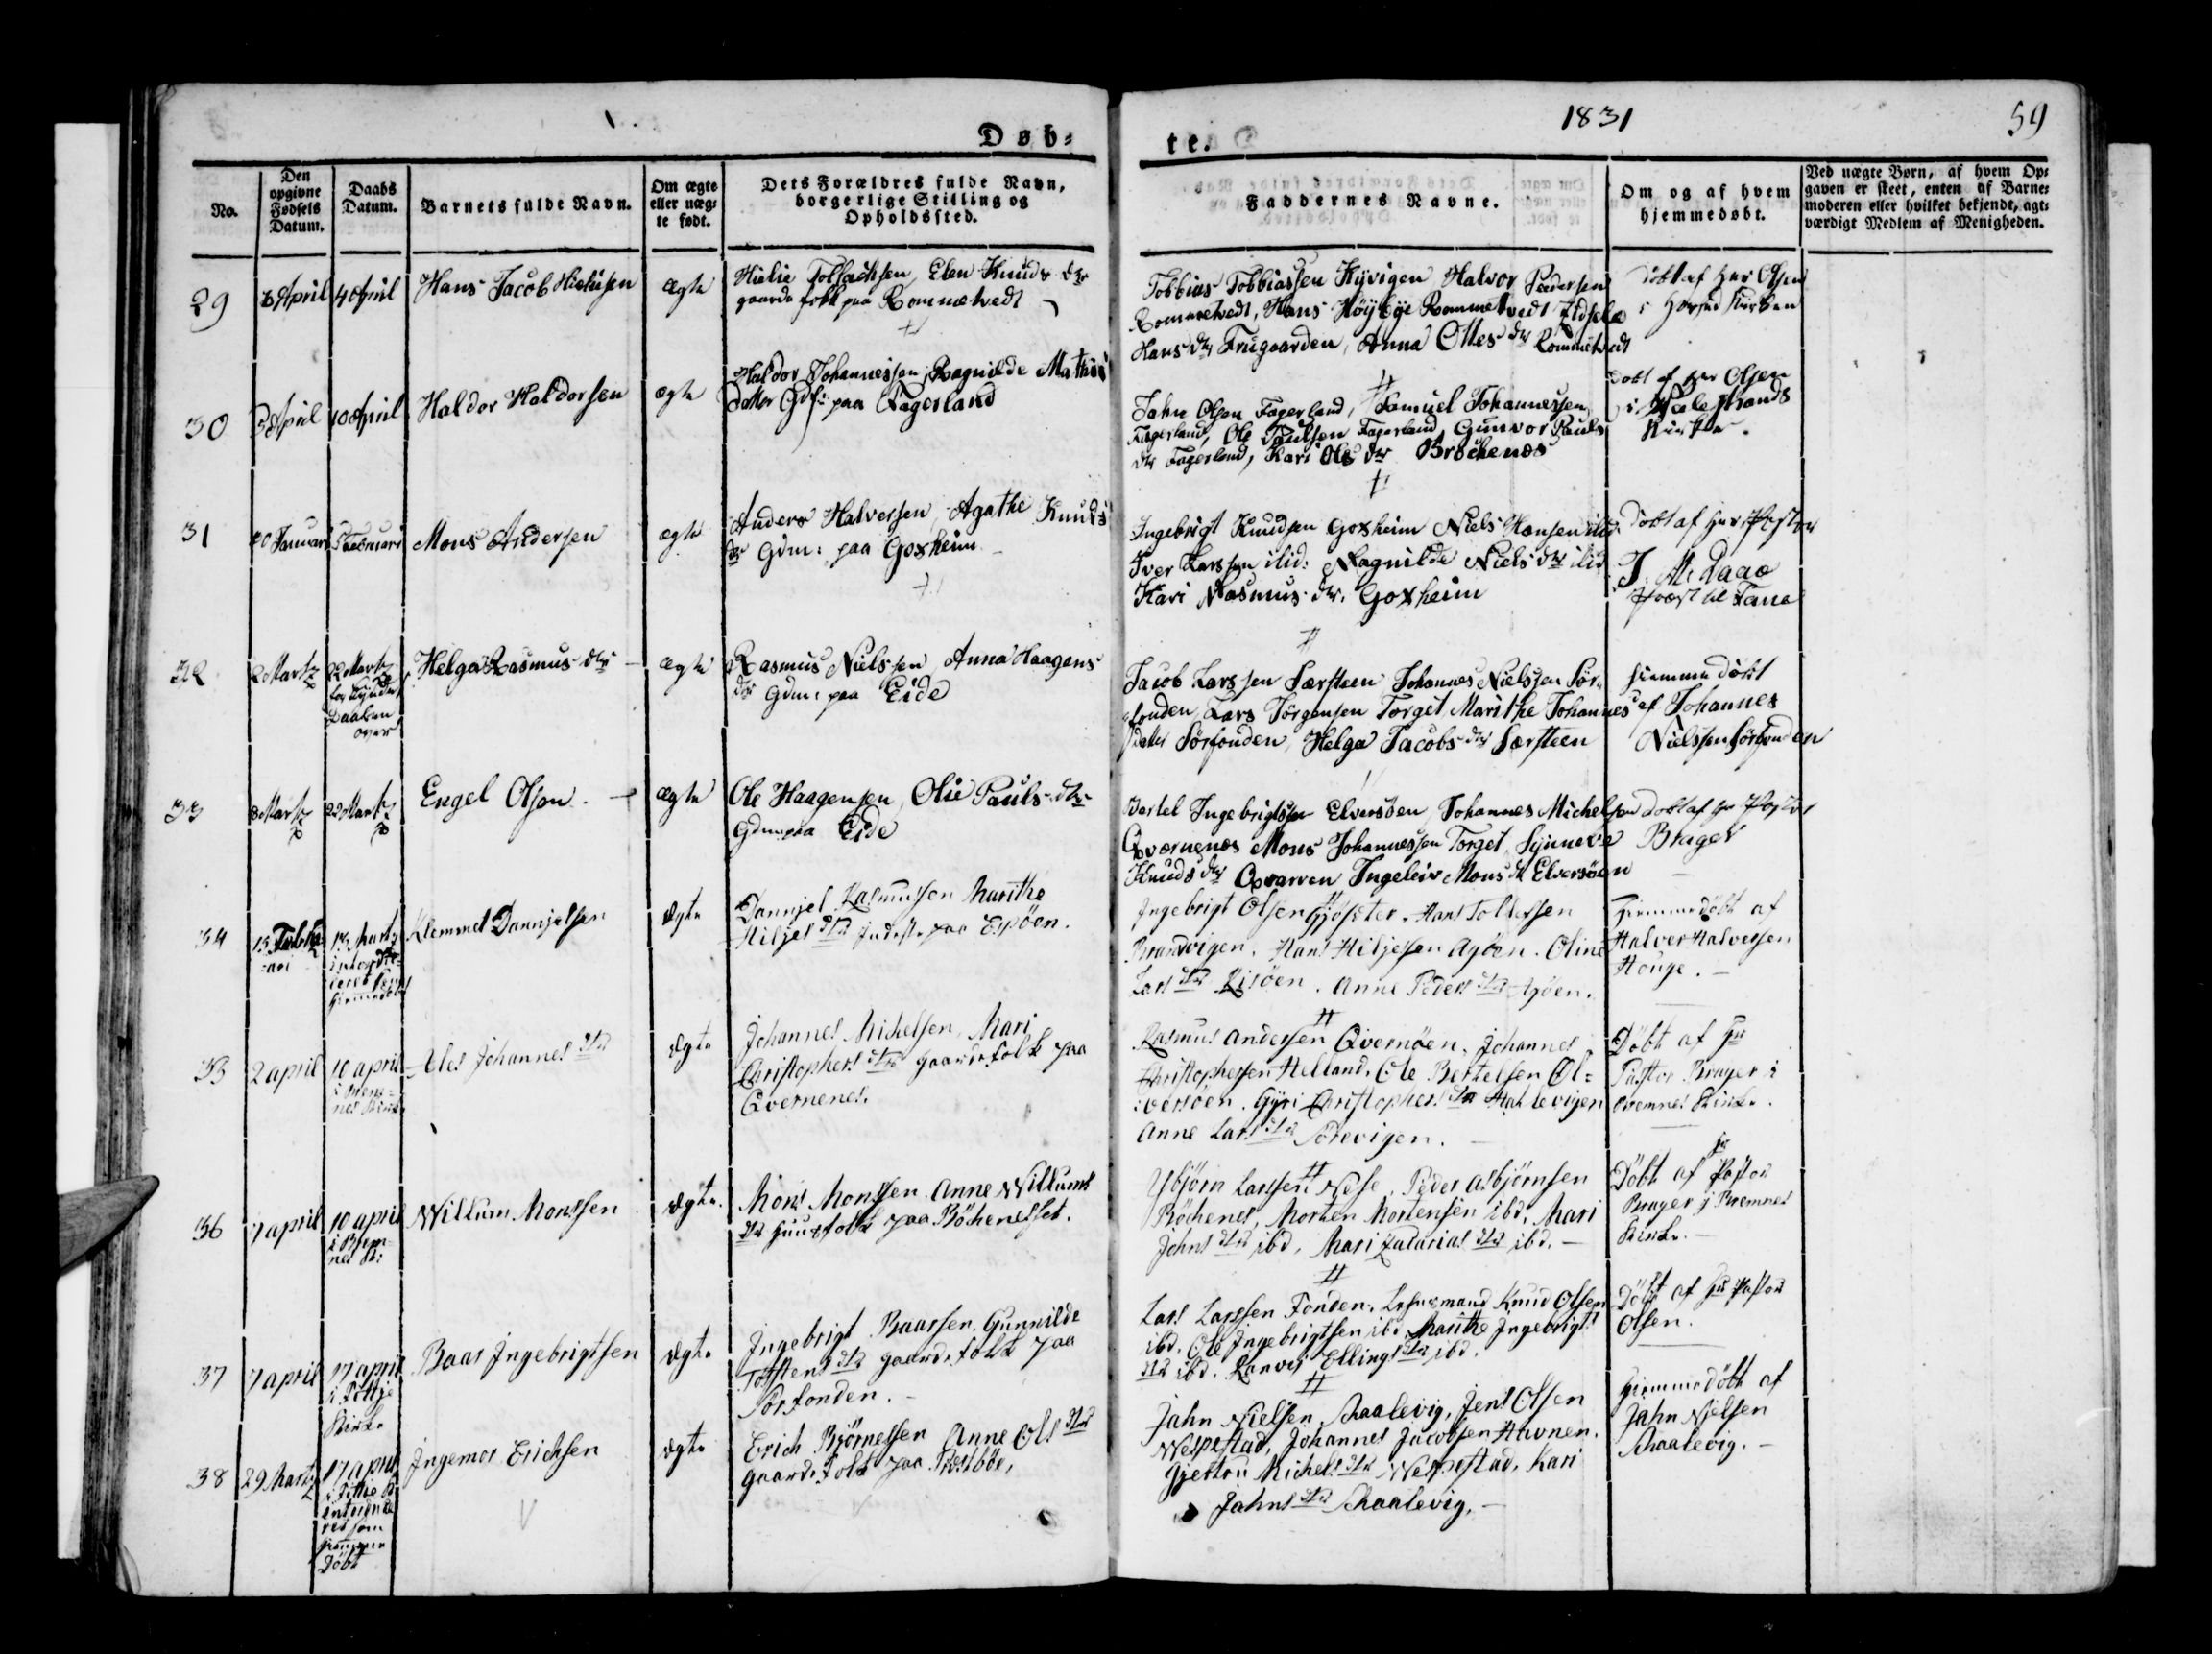 1831
59
Døb-
te.
No.
Den opgivne Fødsels Datum.
Daabs Datum.
Barnets fulde Navn.
Om ægte eller uæg-te født.
Dets Forældres fulde Navn, borgerlige Stilling og Opholdssted.
Faddernes Navne.
Om og af hvem hjemmedøbt.
Ved uægte Børn, af hvem Op-gaven er skeet, enten af Barne-moderen eller hvilket bekjendt, agt-værdigt Medlem af Menigheden.
29
April
4 April
Hans Jacob
ægte
Elen Knuds dtr
gaards folk paa Rommetvedt
Tobbias Tobbiassen Kyvigen Halvor Pedersen
Rommetvedt, Hans Höybye Rommetvedt
Hans dtr Frugaarden, Anna Olles dtr Rommetvedt
Döbt af Her Olsen
i Kirken
30
April
10 April
Haldor Haldorsen
ægte
Haldor Johannessen, Ragnilde Mathis
datter Gdf: paa Fagerland
Jahn Olsen Fagerland, Samuel Johannessen
Fagerland, Ole Paulsen Fagerland, Gunvor Pauls
dtr Fagerland, Kari Ols dtr Bröchenæs
Döbt af Her Olsen
i
Kirke.
31
Januari
Februari
Mons Andersen
ægte
Anders Halversen, Agathe Knuds
dtr Gdm: paa Goxheim
Ingebrigt Knudsen Goxheim Niels Hansen ibid:
Iver Larssen ibid: Ragnilde Niels dtr ibid
Kari Rasmus dtr. Goxheim
Döbt af Her Pastor
J. M. Daae
Præst til Fane
32
Martz
22 Martz
Daaben
over
Helga Rasmus dtr
ægte
Rasmus Nielssen, Anna Haagens
dtr Gdm: paa Eide
Jacob Larssen Særsteen Johannes Nielssen Sör-
fonden, Lars Jörgensen Torget, Marithe Johannes
datter Sörfonden, Helga Jacobs dtr Særsteen
hiemme döbt
af Johannes
Nielssen Sörfonden
33
8 Martz
22 Martz
Engel Olsen.
ægte
Ole Haagensen, Olie Pauls dtr
Gdm paa Eide
Bertel Ingebrigtsen Elversöen, Johannes Michelsen
Qværnenæs Mons Johannessen Torget, Synneve
Knuds dtr Qvarven Ingeleiv Mons dtr Elversöen
döbt af Hr Pastor
Brager
34
13 Febru
=ari
13 Martz
Klemmet Dannjelsen
ægte
Dannjel Rasmussen Marithe
Hiljes dtr Inderste paa Espöen.
Ingebrigt Olsen Gjöseter. Hans Tollefsen
Brandvigen. Hans Hiljesen Agöen. Oline
Lars dtr Risöen. Anne Peders dtr Agöen.
Hiemmedöbt af
Halver Halversen
Houge.
35
2 april
10 april
i Brem-
nes Kirke
Johannes dtr
ægte
Johannes Michelsen, Mari
Christophers dtr gaardsfolk paa
Qvernenes.
Rasmus Andersen Qvernöen, Johannes
Christophersen Helland, Ole Bertelsen Öl-
versöen. Gÿri Christophers dtr
Anne Lars dtr
Döbt af Hr
Pastor Brager i
Bremnes Kirke.
36
7 april
10 april
i Brem-
nes K:
Willum Monssen
ægte.
Mons Monssen Anne Willums
dtr Huusfolk paa Böchenesset.
Ysbjörn Larssen Nese, Peder Asbjörnsen
Böchenes, Morten Mortensen ibd, Mari
Johns dtr ibd, Mari Zacarias dtr ibd.
Döbt af Hr Pastor
Brager i Bremnes
Kirke.
37
7 april
17 april
i Fittje
Kirke
Baar Ingebrigtsen
ægte
Ingebrigt Baarsen. Gunnilde
Torstens dtr gaardsfolk paa
Sörfonden.
Lars Larssen Fonden, Lehnsmand Knud Olsen
ibd, Ole Ingebrigtsen ibd, Marithe Ingebrigts
dtr ibd. Ranvei Ellings dtr ibd.
Döbt af Hr Pastor
Olsen.
38
29 Martz
17 april
i Fittje K:
som
hjemme
Döbt
Ingemor Erichsen
ægte
Erich Björnelsen Anne Ols dtr
gaardsfolk paa Prestböe,
Jahn Nielsen Skaalevig, Jens Olsen
Wespestad, Johannes Jacobsen Havnen.
Gjertru Michels dtr Wespestad, Kari
Jahns dtr Skaalevig.
Hiemmedöbt af
Jahn Nielsen
Skaalevig.